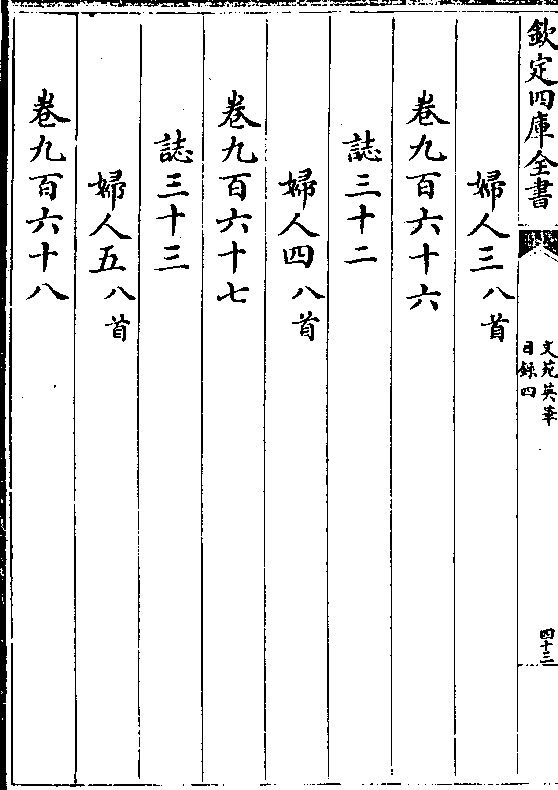 欽定四庫全書
文苑英華
目録四
四十三
婦人三八首
卷九百六十六
誌三十二
婦人四八首
卷九百六十七
誌三十三
婦人五八首
卷九百六十八